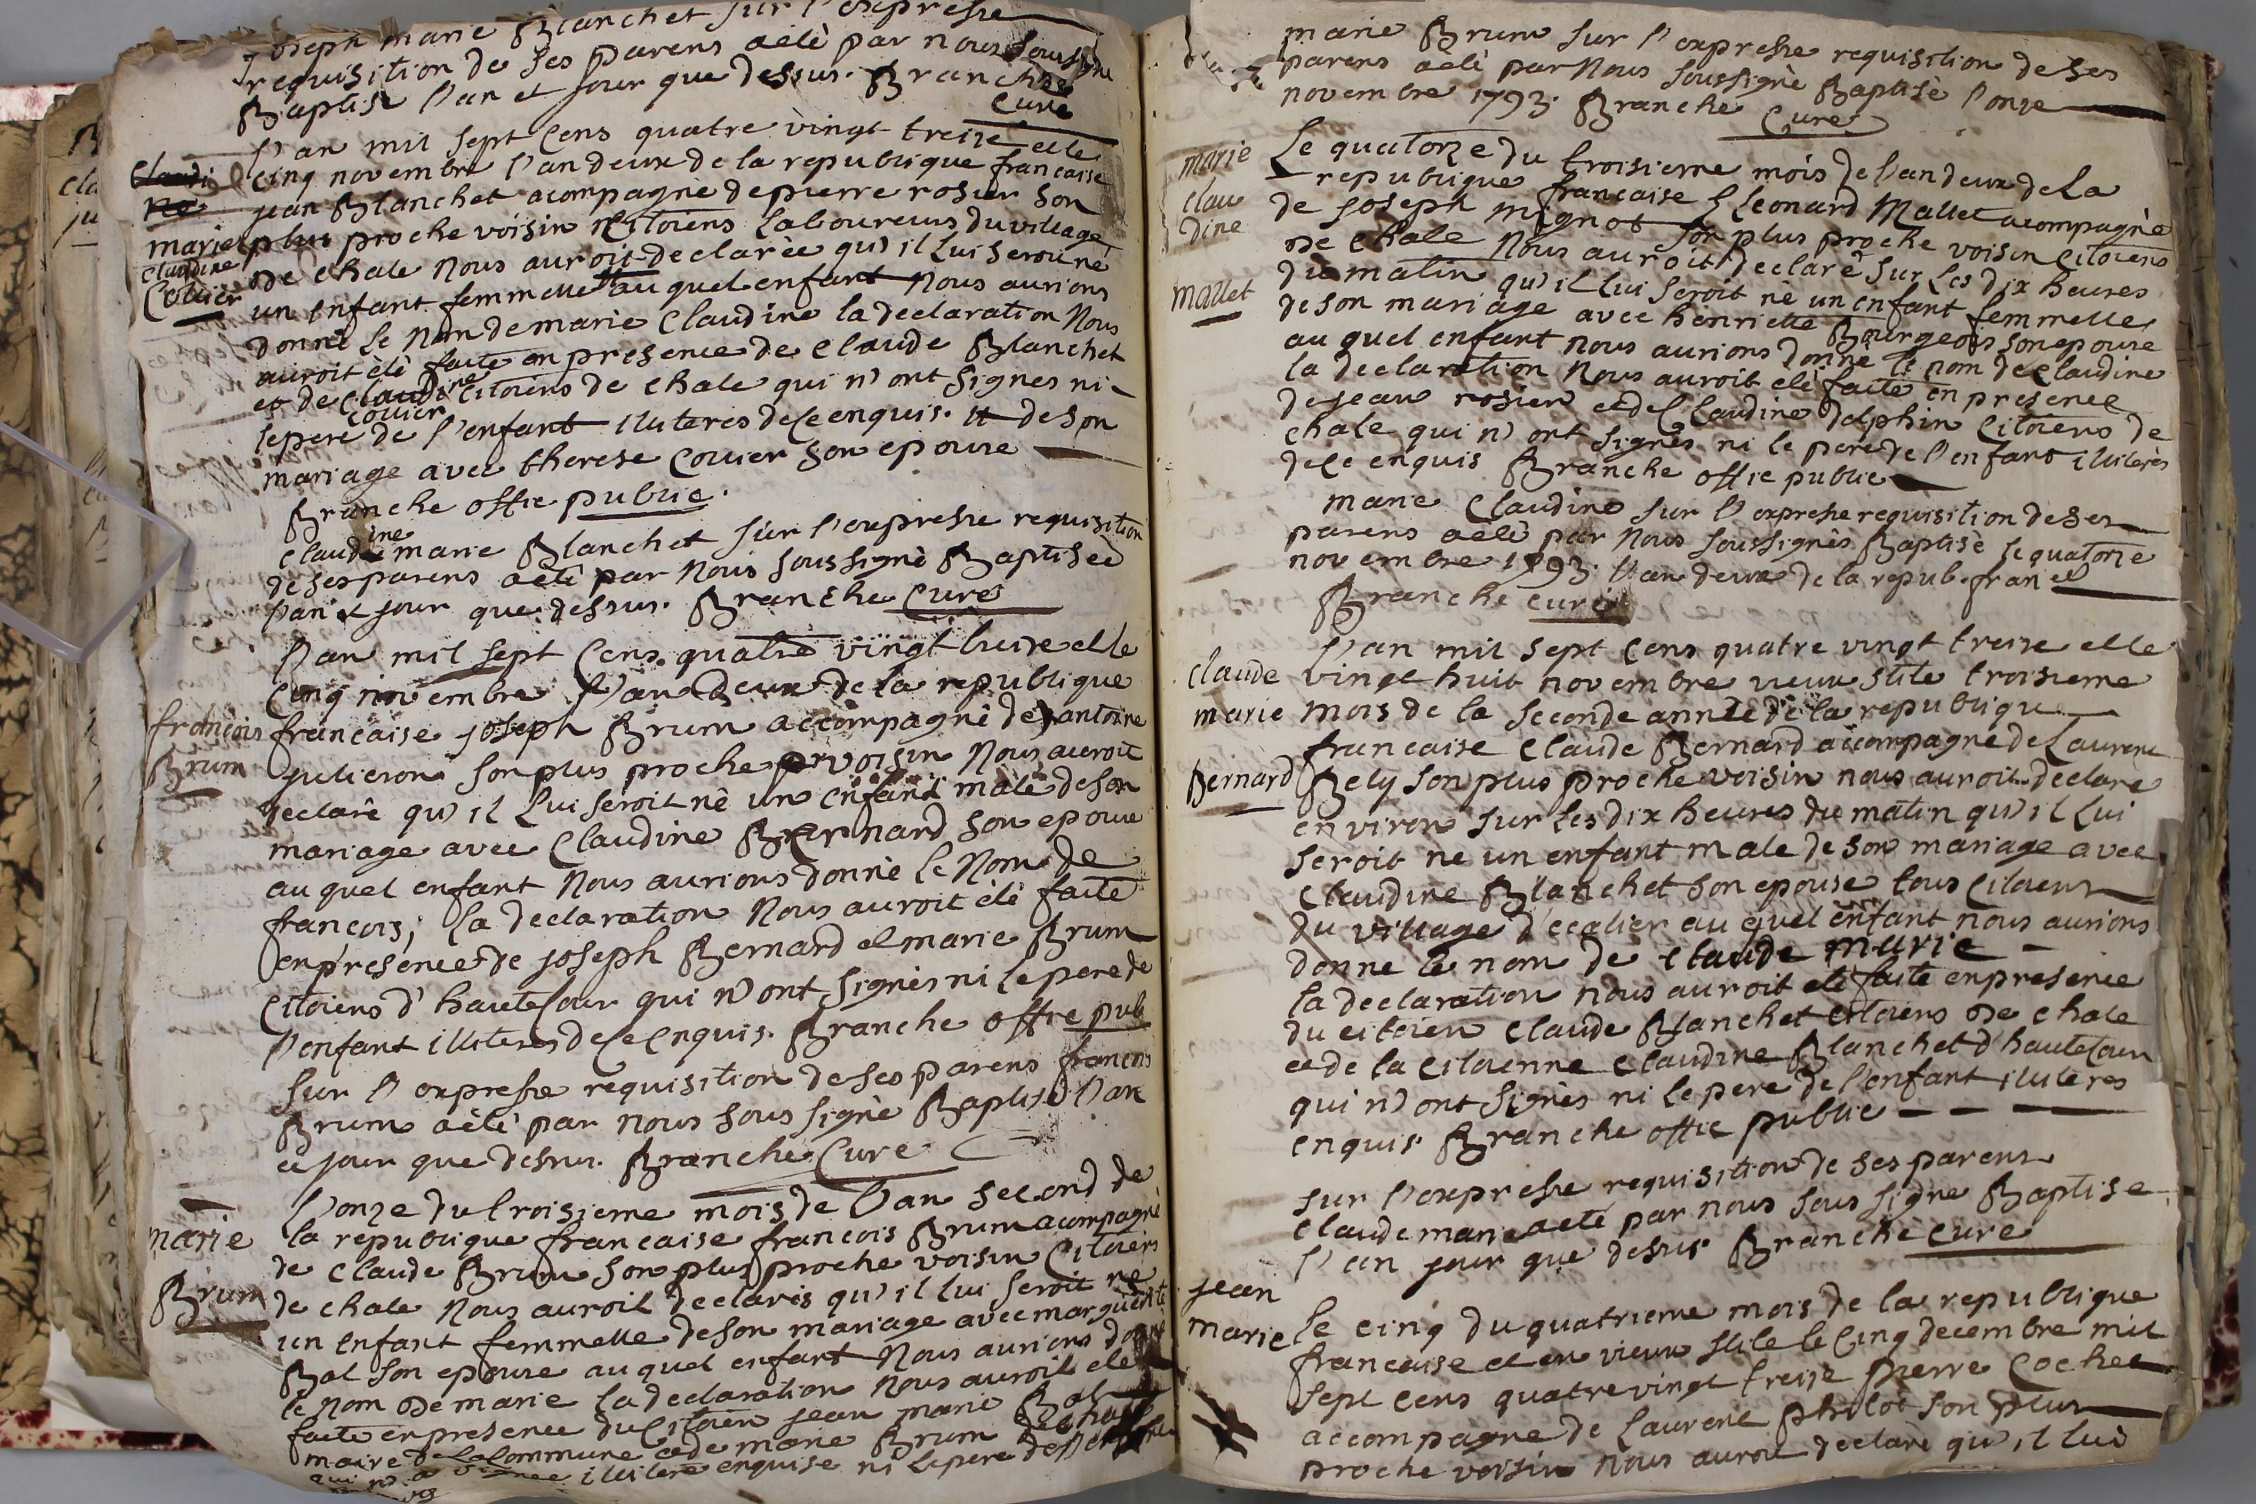 joseph marie Blanchet sur l'expresse
requisition de ses parens aeté par nous soussigné
Baptise l'an et jour que dessus. Branche
Curé
l'an mil sept cens quatre vingt treize et le
cinq novembre l'an deux de la republique francaise
Claudi
ne
jean Blanchet acompagné de pierre rosier son
marie plus proche voisin Citoiens Laboureurs du village
claudine
Couier
de chale nous auroit declarée qu'il lui seroit né
un enfant femmelle au quel enfant nous aurions
donné le nom de marie Claudine la declaration nous
auroit été faite en presence de claude Blanchet
et de claudine couier citoiens de chale qui n'ont signes ni
le pere de l'enfant illiteres de ce enquis. et de son
mariage avec therese Couier son epouse
Branche offic public.
claudine marie Blanchet sur l'expresse requisition
de ses parens aeté par nous soussigné Baptisee
l'an et jour que dessus. Branche Curé
l'an mil sept Cens quatre vingt treize et le
Cinq novembre l'an deux de la republique
francois
Brum
francaise joseph Brum accompagné de antoine
julieron son plus proche voisin nous auroit
declaré qu'il lui seroit né un enfant male de son
mariage avec Claudine Bernard son epouse
au quel enfant nous aurions donné le nom de
francois; la declaration nous auroit été faite
en presence de joseph Bernard et marie Brum
Citoiens d'hautecour qui n'ont signés ni le pere de
l'enfant illiteres de ce enquis. Branche offic pub
sur l'expresse requisition de ses parens francois
Brum aeté par nous sous signé Baptisé l'an
et jour que dessus. Branche Curé
marie
Brum
l'onze du troisieme mois de l'an second de
la republique francaise francois Brum acompagné
de claude Brum son plus proche voisin Citoiens
de chale nous auroit declarés qu'il lui seroit né
un enfant femmelle de son mariage avec marguerite
Bal son epouse au quel enfant nous aurions donné
le nom de marie la declaration nous auroit été
faite en presence du Citoien jean marie Bal
maire de la Commune et de marie Brum de chale
illitere enquise ni le pere de
marie Brum sur l'expresse requisition de ses
parens aeté par nous soussigné Baptisé l'onze
novembre 1793. Branche Curé
marie
clau
dine
mallet
Le quatorze du troisieme mois de l'an deux de la
republique francaise Leonard Mallet acompagné
de joseph mignot son plus proche voisin citoiens
de chale nous auroit declaré sur les dix heures
du matin qu'il lui seroit né un enfant femmelle
de son mariage avec henriette Bourgeois son epouse
au quel enfant nous aurions donné le nom de claudine
la declaration nous auroit été faite en presence
de jean rosier et de Claudine dalphin Citoiens de
chale qui n'ont signés ni le pere de l'enfant illiterés
de ce enquis Branche offic public
marie Claudine sur l'expresse requisition de ses
parens aeté par nous soussignés Baptisé le quatorze
novembre 1793. l'an deux de la repub. franc
Branche curé
claude
marie
Bernard
l'an mil sept cens quatre vingt treize et le
vingt huit novembre vieux stile troisieme
mois de la seconde année de la republique
francaise Claude Bernard accompagné de Laurent
Bely son plus proche voisin nous auroit declaré
environ sur les dix heures du matin qu'il lui
seroit ne un enfant male de son mariage avec
Claudine Blanchet son epouse tous Citoiens
du village d'ecalier au quel enfant nous aurions
donne le nom de claude marie
la declaration nous auroit eté faite en presence
du citoien claude Blanchet citoiens de chale
et de la citoienne Claudine Blanchet d'hautecour
qui n'ont signés ni le pere de l'enfant illiteres
enquis. Branche offic public
sur l'expresse requisition de ses parens
claude marie aeté par nous sous signe Baptise
l'an jour que dessus. Branche curé
jean
marie
le cinq du quatrieme mois de la republique
francaise et en vieux stile le Cinq decembre mil
sept cens quatre vingt treize pierre Cochet
accompagné de laurent philot son plus
proche voisin nous auroit declaré qu'il lui